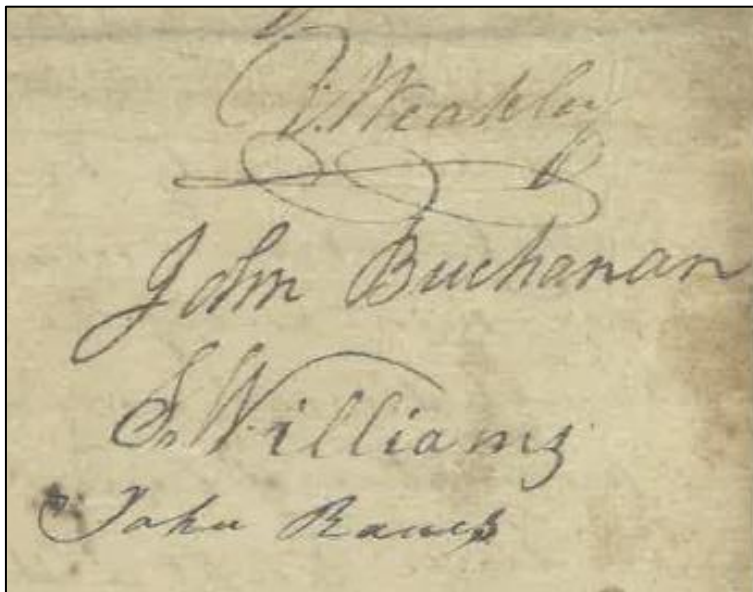 Weakley
John Buchanan
S. Williams
John